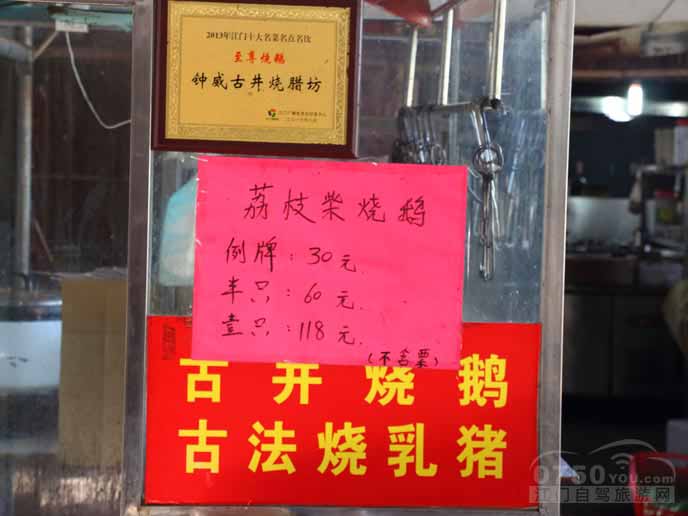 2013年江门十大名菜名点名饮
至尊烧鹅
钟威古井烧腊坊
荔枝柴烧鹅
例牌:30元
半只:60元
壹只:118元
(不含票)
古井烧鹅
古法烧乳猪
0750YOU.com
江门自驾旅游网